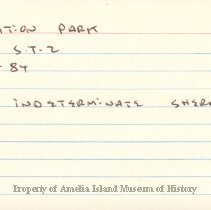 ATION PARK
S.T-2
84
INDETERMINATE SHER
Property of Amelia Island Museum of History